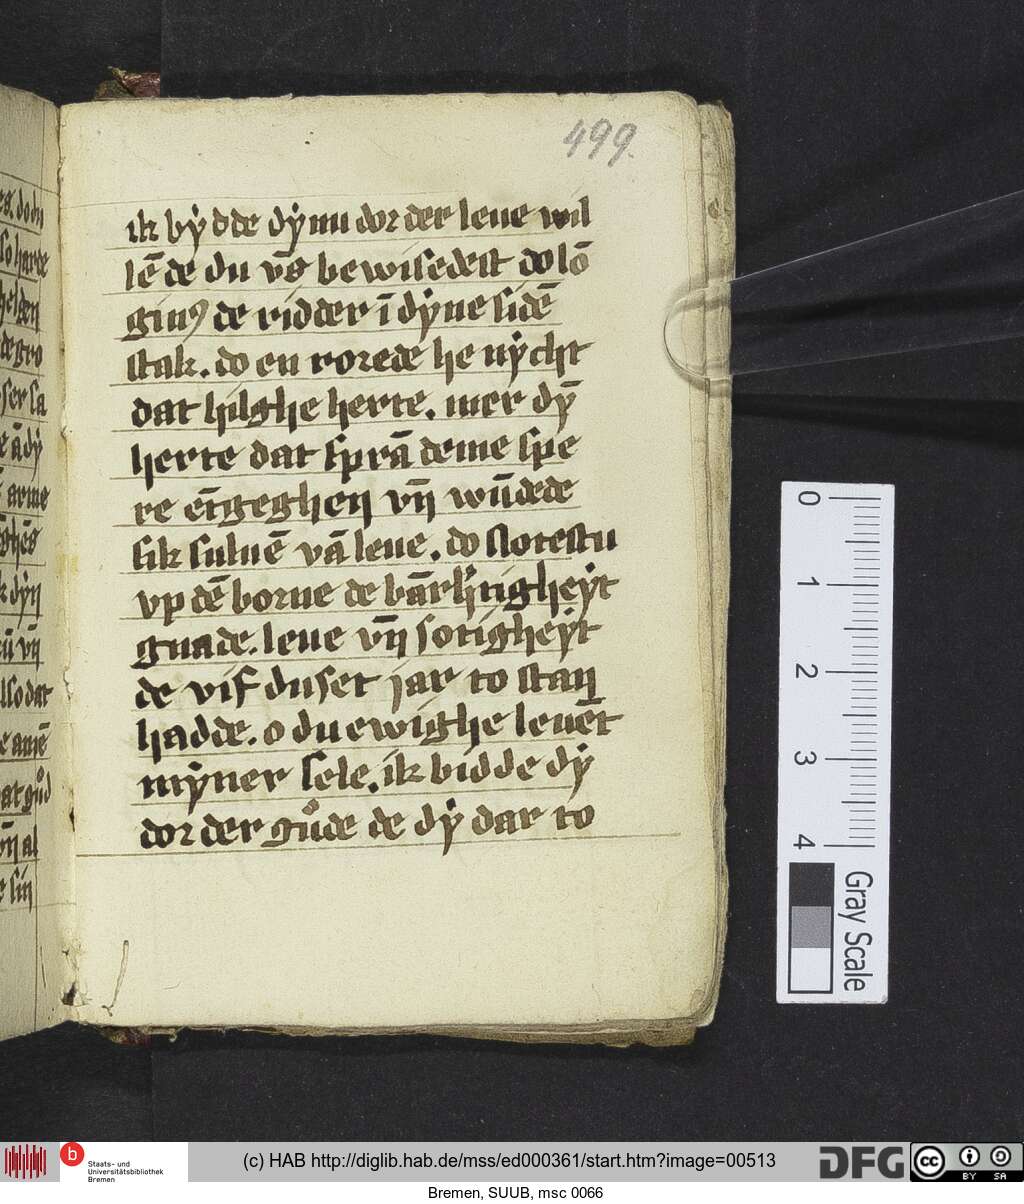 499.
ik bẏdde dẏ nu dor der leue wil
lē de du vns bewisedest do lō
ginꝰ de ridder ī dẏne sidē
stak. do en rorede he nẏcht
dat hilghe herte. mer dẏ̄
herte dat sprā deme spe
re ēt̄geghen vn̄ wūdede
sik suluē vā leue. do slotestu
vp dē borne de bārh̓tigheẏt
gnade. leue vn̄ sotigheẏt
de vif duset jar to stan
hadde. o du ewighe leuēt
mẏner sele. ik bidde dẏ
dor der gůde de dẏ dar to
0
1
2
3
4
Gray Scale
b
Staats- und
Universitätsbibliothek
Bremen
(c) HAB http://diglib.hab.de/mss/ed000361/start.htm?image=00513
DFG
cc BY SA
Bremen, SUUB, msc 0066